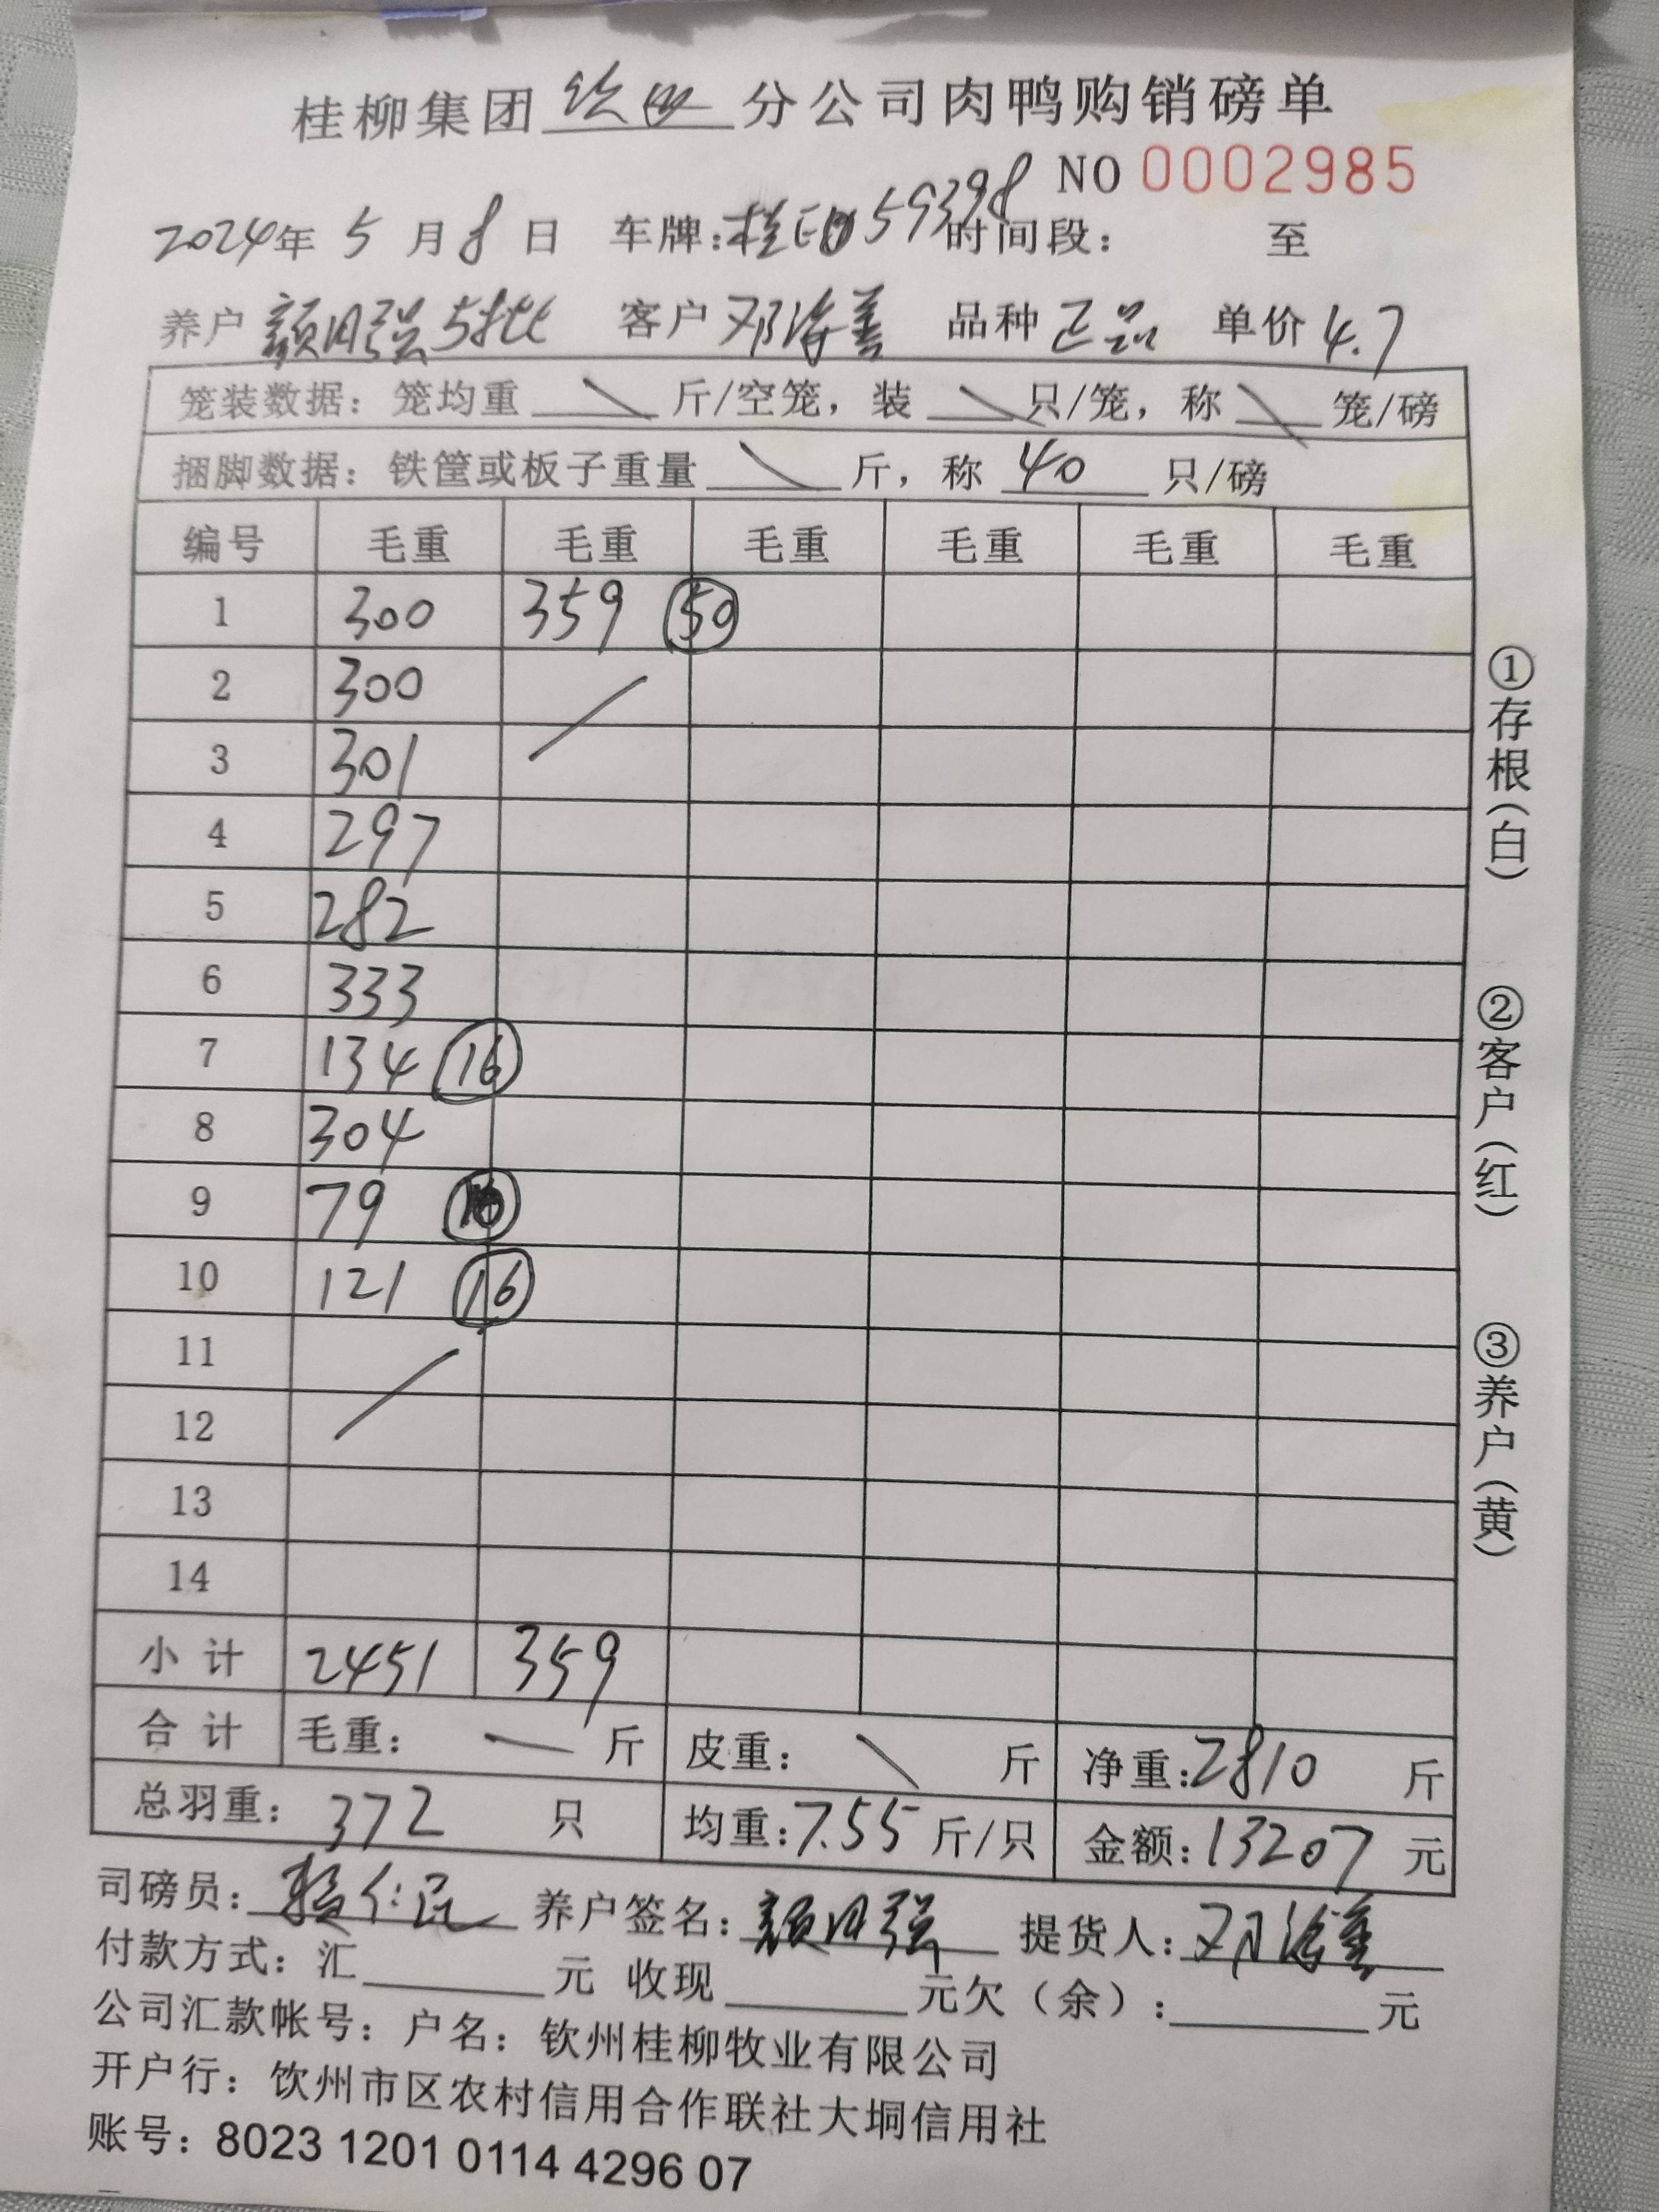 桂柳集团 钦州 分公司肉鸭购销磅单
NO 0002985
2024年 5 月 8 日 车牌: 59398 时间段: 至
养户 颜月强5批 客户 邓海善 品种 正品 单价 4.7
笼装数据: 笼均重 斤/空笼, 装 只/笼, 称 笼/磅
捆脚数据: 铁筐或板子重量 斤, 称 40 只/磅
编号 毛重 毛重 毛重 毛重 毛重 毛重
1 300 359 50
2 300
3 301
4 297
5 282
6 333
7 134 16
8 304
9 79
10 121 16
11
12
13
14
小计 2451 359
合计 毛重: 斤 皮重: 斤 净重: 2810 斤
总羽重: 372 只 均重: 7.55 斤/只 金额: 13207 元
司磅员: 养户签名: 颜月强 提货人: 邓海善
付款方式: 汇 元 收现 元欠(余): 元
公司汇款帐号: 户名: 钦州桂柳牧业有限公司
开户行: 饮州市区农村信用合作联社大垌信用社
账号: 8023 1201 0114 4296 07
①存根(白)
②客户(红)
③养户(黄)